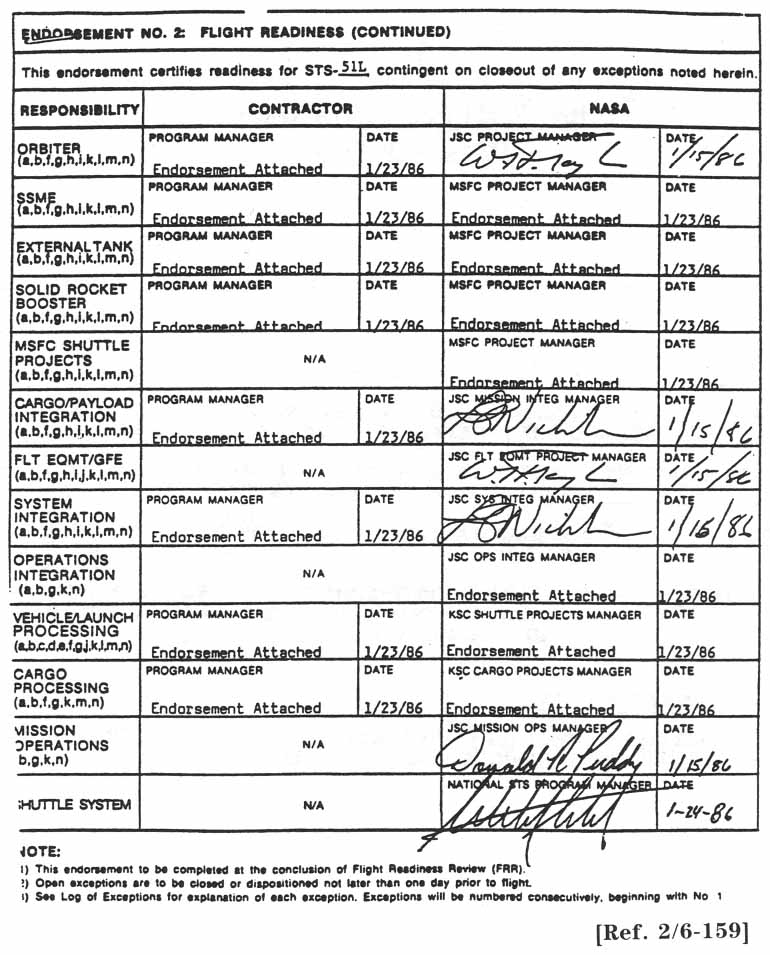 ENDORSEMENT NO. 2: FLIGHT READINESS (CONTINUED)
This endorsement certifies readiness for STS-51L contingent on closeout of any exceptions noted herein.
RESPONSIBILITY CONTRACTOR NASA
ORBITER (a,b,f,g,h,i,k,l,m,n)
PROGRAM MANAGER DATE JSC PROJECT MANAGER DATE
Endorsement Attached 1/23/86 1/15/86
SSME (a,b,f,g,h,i,k,l,m,n)
PROGRAM MANAGER DATE MSFC PROJECT MANAGER DATE
Endorsement Attached 1/23/86 Endorsement Attached 1/23/86
EXTERNAL TANK (a,b,f,g,h,i,k,l,m,n)
PROGRAM MANAGER DATE MSFC PROJECT MANAGER DATE
Endorsement Attached 1/23/86 Endorsement Attached 1/23/86
SOLID ROCKET BOOSTER (a,b,f,g,h,i,k,l,m,n)
PROGRAM MANAGER DATE MSFC PROJECT MANAGER DATE
Endorsement Attached 1/23/86 Endorsement Attached 1/23/86
MSFC SHUTTLE PROJECTS (a,b,f,g,h,i,k,l,m,n)
N/A MSFC PROJECT MANAGER DATE
Endorsement Attached 1/23/86
CARGO/PAYLOAD INTEGRATION (a,b,f,g,h,i,k,l,m,n)
PROGRAM MANAGER DATE JSC MISSION INTEG MANAGER DATE
Endorsement Attached 1/23/86 1/15/86
FLT EQMT/GFE (a,b,f,g,h,i,j,k,l,m,n)
N/A JSC FLT EQMT PROJECT MANAGER DATE
1/15/86
SYSTEM INTEGRATION (a,b,f,g,h,i,k,l,m,n)
PROGRAM MANAGER DATE JSC SYS INTEG MANAGER DATE
Endorsement Attached 1/23/86 1/15/86
OPERATIONS INTEGRATION (a,b,g,k,n)
N/A JSC OPS INTEG MANAGER DATE
Endorsement Attached 1/23/86
VEHICLE/LAUNCH PROCESSING (a,b,c,d,e,f,g,j,k,l,m,n)
PROGRAM MANAGER DATE KSC SHUTTLE PROJECTS MANAGER DATE
Endorsement Attached 1/23/86 Endorsement Attached 1/23/86
CARGO PROCESSING (a,b,f,g,k,m,n)
PROGRAM MANAGER DATE KSC CARGO PROJECTS MANAGER DATE
Endorsement Attached 1/23/86 Endorsement Attached 1/23/86
MISSION OPERATIONS b,g,k,n)
N/A JSC MISSION OPS MANAGER DATE
Donald R Puddy 1/15/86
SHUTTLE SYSTEM
N/A NATIONAL STS PROGRAM MANAGER DATE
1-24-86
NOTE:
1) This endorsement to be completed at the conclusion of Flight Readiness Review (FRR).
2) Open exceptions are to be closed or dispositioned not later than one day prior to flight.
3) See Log of Exceptions for explanation of each exception. Exceptions will be numbered consecutively, beginning with No 1
[Ref. 2/6-159]